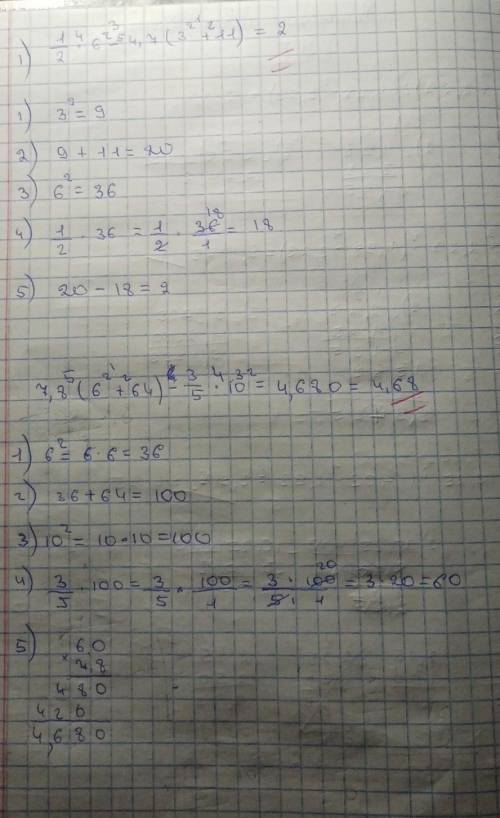 1) 1/2 · 6² - 4,7 (3² + 11) = 2
1) 3² = 9
2) 9 + 11 = 20
3) 6² = 36
4) 1/2 · 36 = 1/2 · 36/1 = 18
5) 20 - 18 = 2
7,8 (6² + 64) - 3/5 · 10² = 4,680 = 4,68
1) 6² = 6 · 6 = 36
2) 36 + 64 = 100
3) 10² = 10 · 10 = 100
4) 3/5 · 100 = 3/5 · 100/1 = 3 · 100/5 · 1 = 3 · 20 = 60
5) 6,0
× 7,8
480
420
4,680